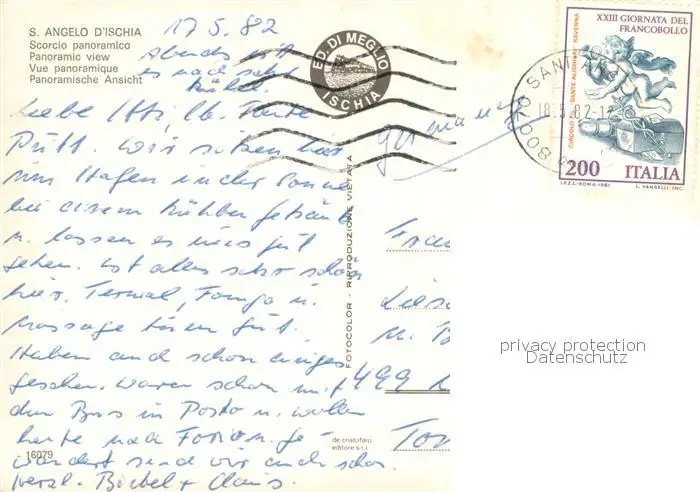 S. ANGELO D'ISCHIA
Scorcio panoramico
Panoramic view
Vue panoramique
Panoramische Ansicht
17.5.82
abends ist
es noch sehr
kühl.
Liebe
wir sitzen hier
im Hafen in der Sonne
bei einem kühlen Getränk
u. lassen es uns gut
gehen. Ist alles sehr schön
hier. Termal, Fango u.
Massage tun gut.
Haben auch schon einiges
gesehen. waren schon m.
dem Bus in Porto u. wollen
heute nach Forio. ge-
wandert sind wir auch schon
herzl. Bärbel + Claus.
16079
ED. DI MEGLIO
ISCHIA
FOTOCOLOR - RIPRODUZIONE VIETATA
de cristofaro
editore s.r.l.
germania
Frau
499
XXIII GIORNATA DEL
FRANCOBOLLO
CIRCOLO FIL. DANTE ALIGHIERI RAVENNA
200 ITALIA
I.P.Z.S.-ROMA-1981 L. VANGELLI INC.
80070 SANT'ANG
18.5.82-12
privacy protection
Datenschutz